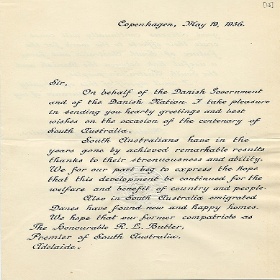 [13]
Copenhagen, May 19, 1936.
Sir,
On behalf of the Danish Government
and of the Danish Nation I take pleasure
in sending you hearty greetings and best
wishes on the occasion of the centenary of
South Australia.
South Australians have in the
years gone by achieved remarkable results
thanks to their strenuousness and ability.
We for our part beg to express the hope
that this development be continued for the
welfare and benefit of country and people.
Also in South Australia emigrated
Danes have found new and happy homes.
We hope that our former compatriots as
The Honourable R. L. Butler,
Premier of South Australia,
Adelaide.